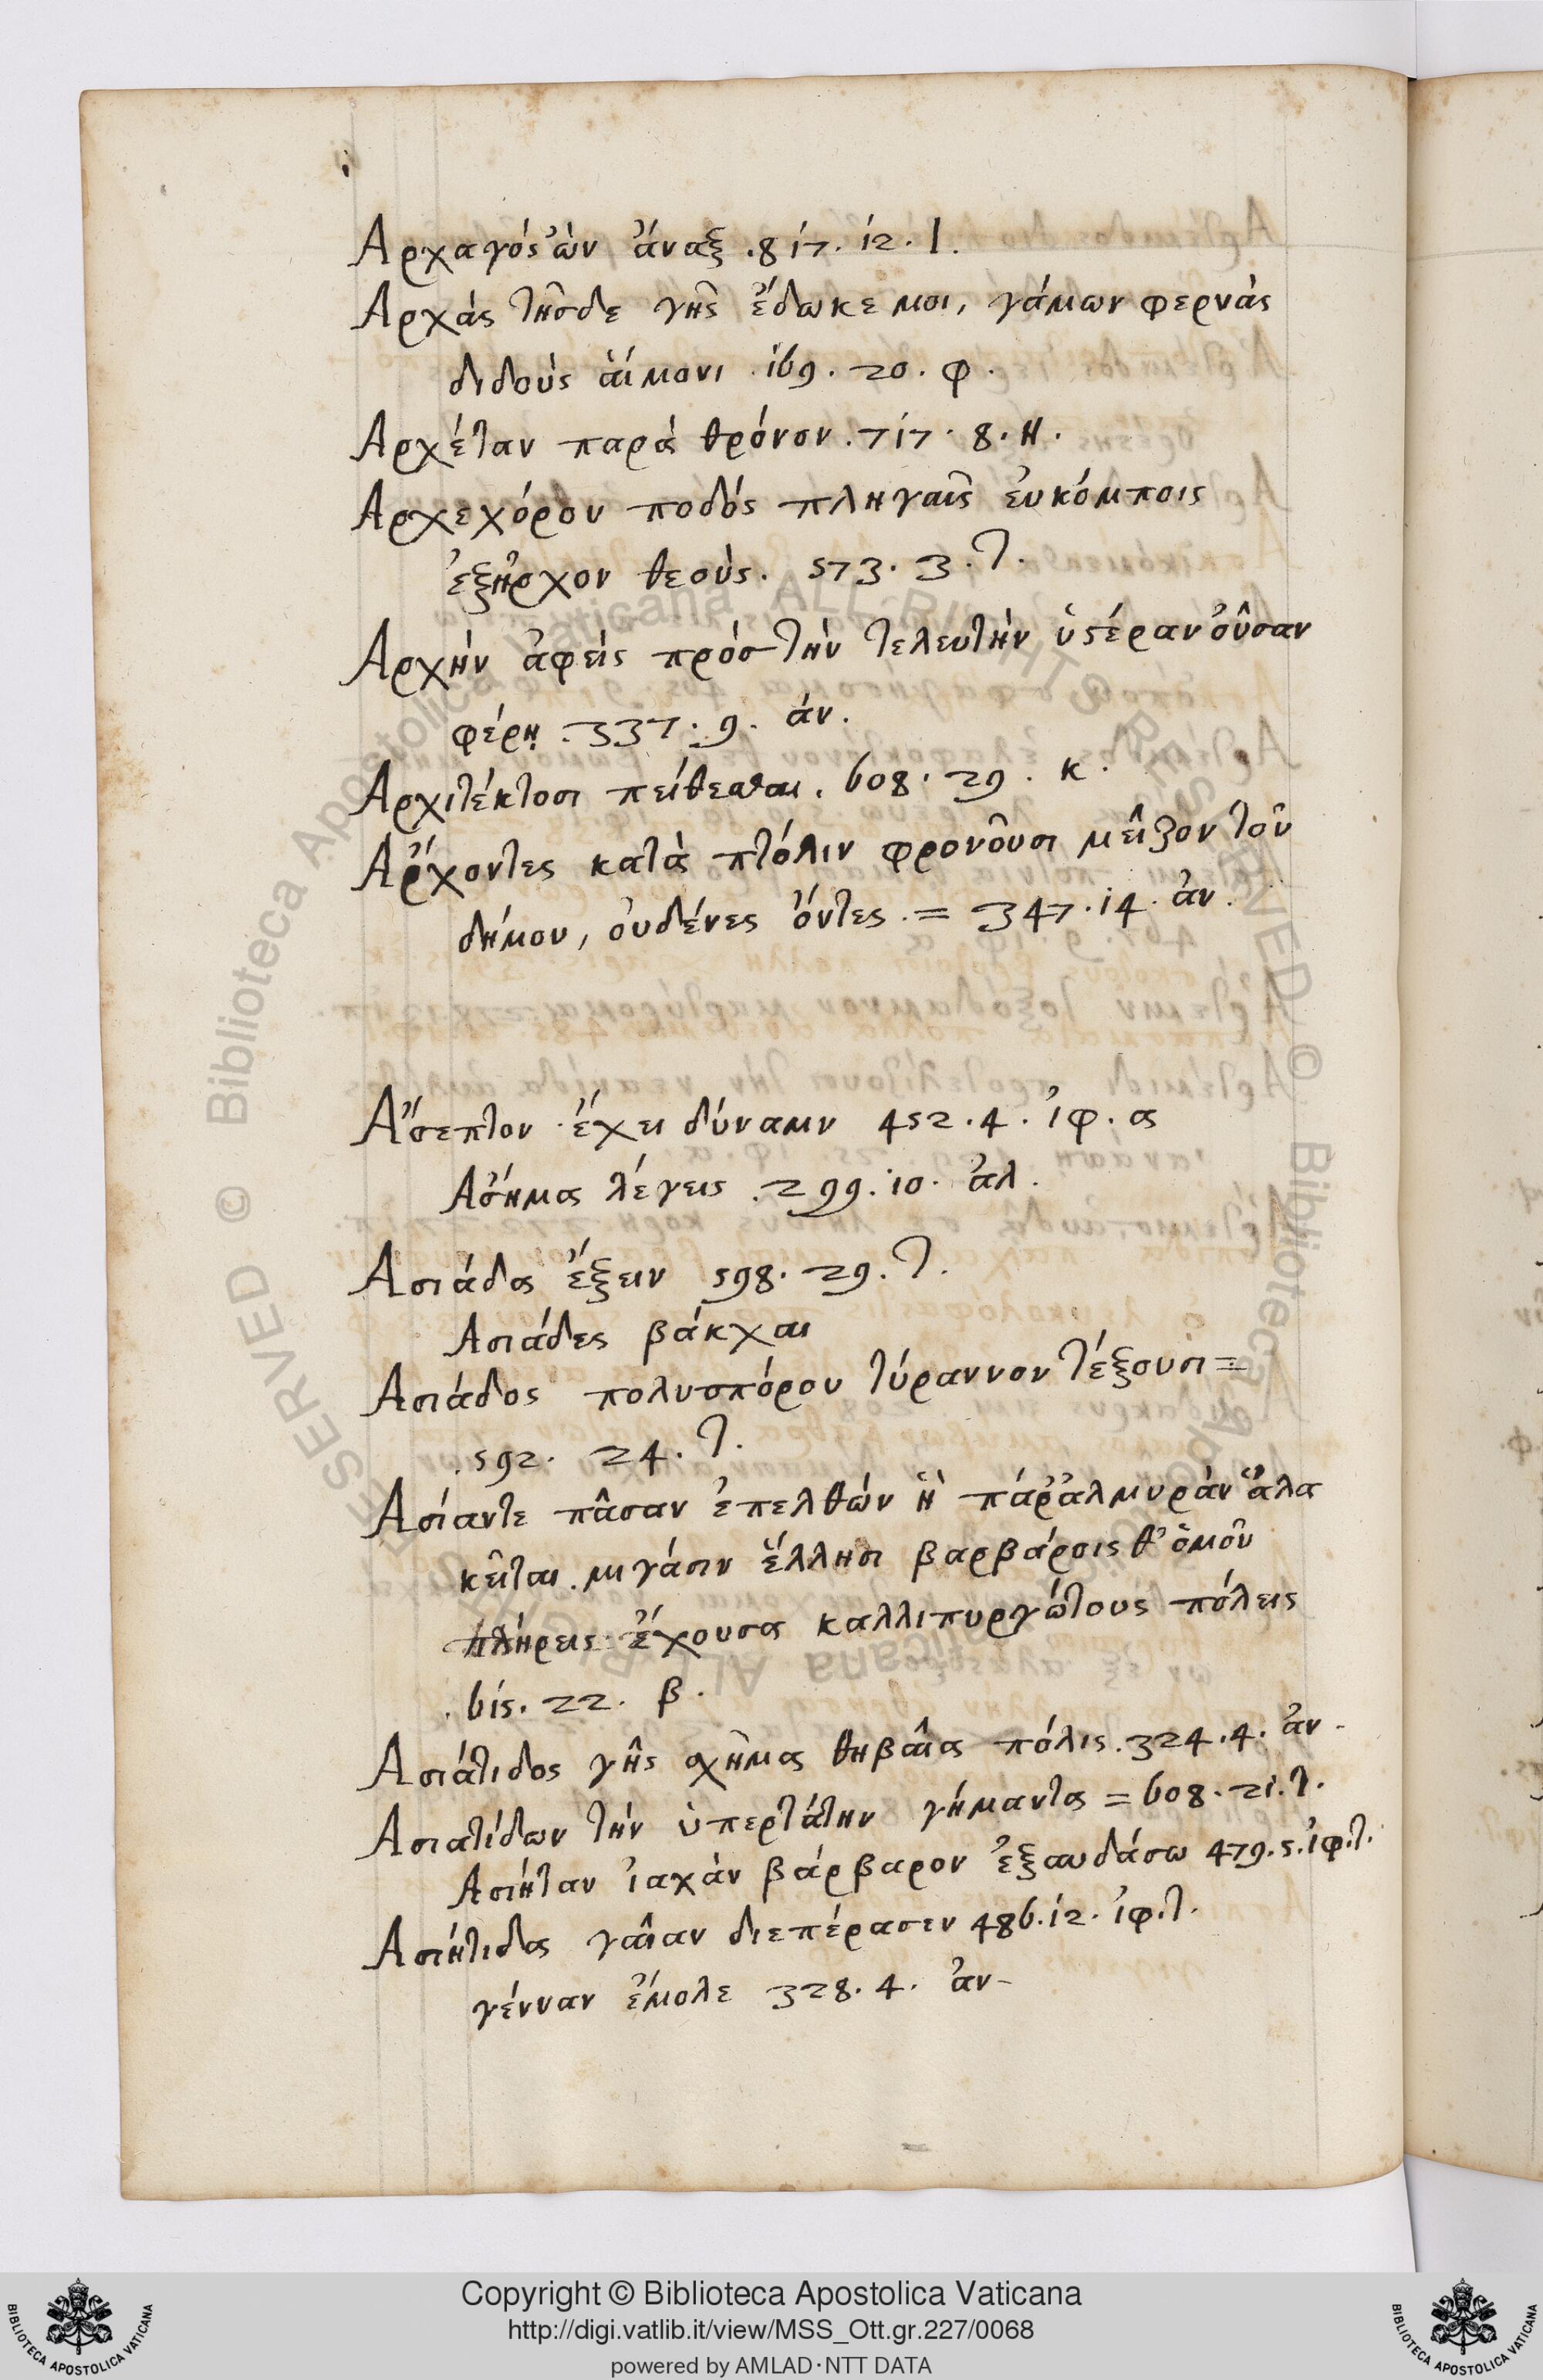 Αρχαγός ὢν ἄναξ .817. 12. Ι.
Αρχάς τῆσδε γῆς ἔδωκε μοι, γάμων φερνάς
διδούς ἁίμονι .169. 20. φ.
Αρχέταν παρά θρόνον. 717. 8. Η.
Αρχεχόρου ποδός πληγαῖς ἐυκόμποις
ἐξῆρχον θεούς. 573. 3. τ.
Αρχήν ἀφείς πρός τὴν τελευτὴν ὑστέραν ὀῦσαν
φέρῃ .337. 9. ἀν.
Αρχιτέκτοσι πείθεσθαι. 608. 29. κ.
Αῤχοντες κατὰ πτόλιν φρονοῦσι μεῖζον τοῦ
δήμου, ὀυδένες ὄντες. = 347. 14. ἀν.
Αὔσεπτον ἔχει δύναμιν 452. 4. ἰφ. α
Ασήμα λέγεις .299. 10. ἀλ.
Ασιάδα ἕξειν 598. 29. τ.
Ασιάδες βάκχαι
Ασιάδος πολυσπόρου τύραννον τέξουσι =
.592. 24. τ.
Ασίαντε πᾶσαν ἐπελθών ἣ πάρ ἁλμυράν ἅλα
κεῖται μιγάσιν ἕλλησι βαρβάροις θ' ὁμοῦ
πλήρεις ἔχουσα καλλιπυργώτους πόλεις
.615. 22. β.
Ασιάτιδος γῆς σχῆμα θηβαῖα πόλις. 324. 4. ἀν.
Ασιατίδων τήν ὑπερτάτην γήμαντα = 608. 21. τ.
Ασιήταν ἰαχάν βάρβαρον ἐξαυδάσω 479. 5. ἰφ. τ.
Ασιήτιδα γαῖαν διεπέρασεν 486. 12. ἰφ. τ.
γένναν ἔμολε 328. 4. ἀν
Copyright © Biblioteca Apostolica Vaticana
http://digi.vatlib.it/view/MSS_Ott.gr.227/0068
powered by AMLAD·NTT DATA
BIBLIOTECA APOSTOLICA VATICANA
BIBLIOTECA APOSTOLICA VATICANA